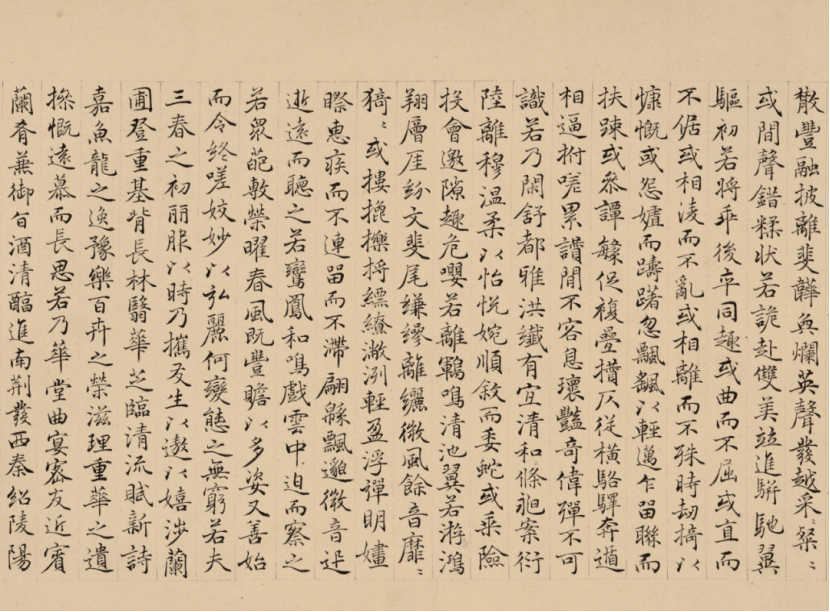 㪚豐融披離斐韡奐爛英聲發越采采粲々
或間聲錯糅狀若詭赴雙美竝進駢馳翼
驅初若將乖後卒同趣或曲而不屈或直而
不倨或相淩而不亂或相離而不殊時劫掎以
慷慨或怨㜘而躊躇忽飄飖以輕邁乍留聯而
扶踈或參譚繁促複疊攢仄從橫駱驛奔遁
相逼拊嗟累讚間不容息瓌豔奇偉殫不可
識若乃閑舒都雅洪纖有宜清和條昶案衍
陸離穆溫柔以怡悅婉順敘而委蛇或乘險
投會邀隙趣危嚶若離鵾鳴清池翼若游鴻
翔層崖紛文斐尾縑縿離纚微風餘音靡々
猗々或摟㧙擽捋縹繚潎洌輕盈浮彈明嫿
瞭惠疾而不連留而不滯翩緜飄邈微音迅
逝遠而聽之若鸞鳳和鳴戲雲中迫而察之
若眾葩敷榮曜春風既豐贍以多姿又善始
而令終嗟姣妙以弘麗何變態之無窮若夫
三春之初丽服以時乃攜友生以遨以嬉涉蘭
圃登重基背長林翳華芝臨清流賦新詩
嘉魚龍之逸豫樂百卉之榮滋理重華之遺
操慨遠慕而長思若乃華堂曲宴密友近賓
蘭肴兼御旨酒清進南荊發西秦紹陵陽